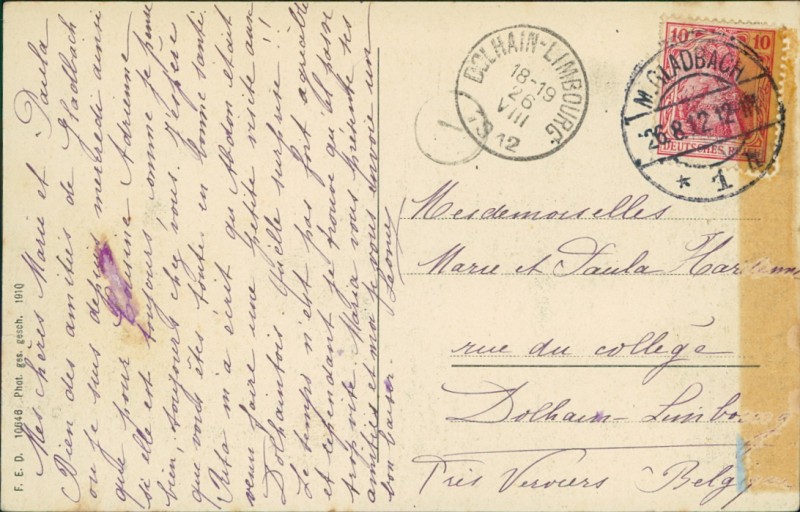 Mes chères Marie et Paula
Bien des amitiés de Gladbach
où je suis depuis mercredi ainsi
que pour Cousine Adrienne
si elle est toujours, comme je pense
bien, toujours chez vous. J'espère
que vous êtes toutes en bonne santé.
m'a écrit qu' était
venu faire une petite visite aux
Dolhaintois. Quelle surprise!!
Le temps n'est pas fort agréable
et cependant je trouve qu'il passe
trop vite. Maria vous présente ses
amitiés et moi je vous envoie un
bon baiser.
F. E. D. 10646 Phot. ges. gesch. 1910
DOLHAIN-LIMBOURG
18-19
26
VIII
1912
10 10
DEUTSCHES REICH
M. GLADBACH
26.8.12.12-1N.
* 1 h
Mesdemoiselles
Marie et Paula
rue du collège
Dolhain-Limbourg
Près Verviers Belgique